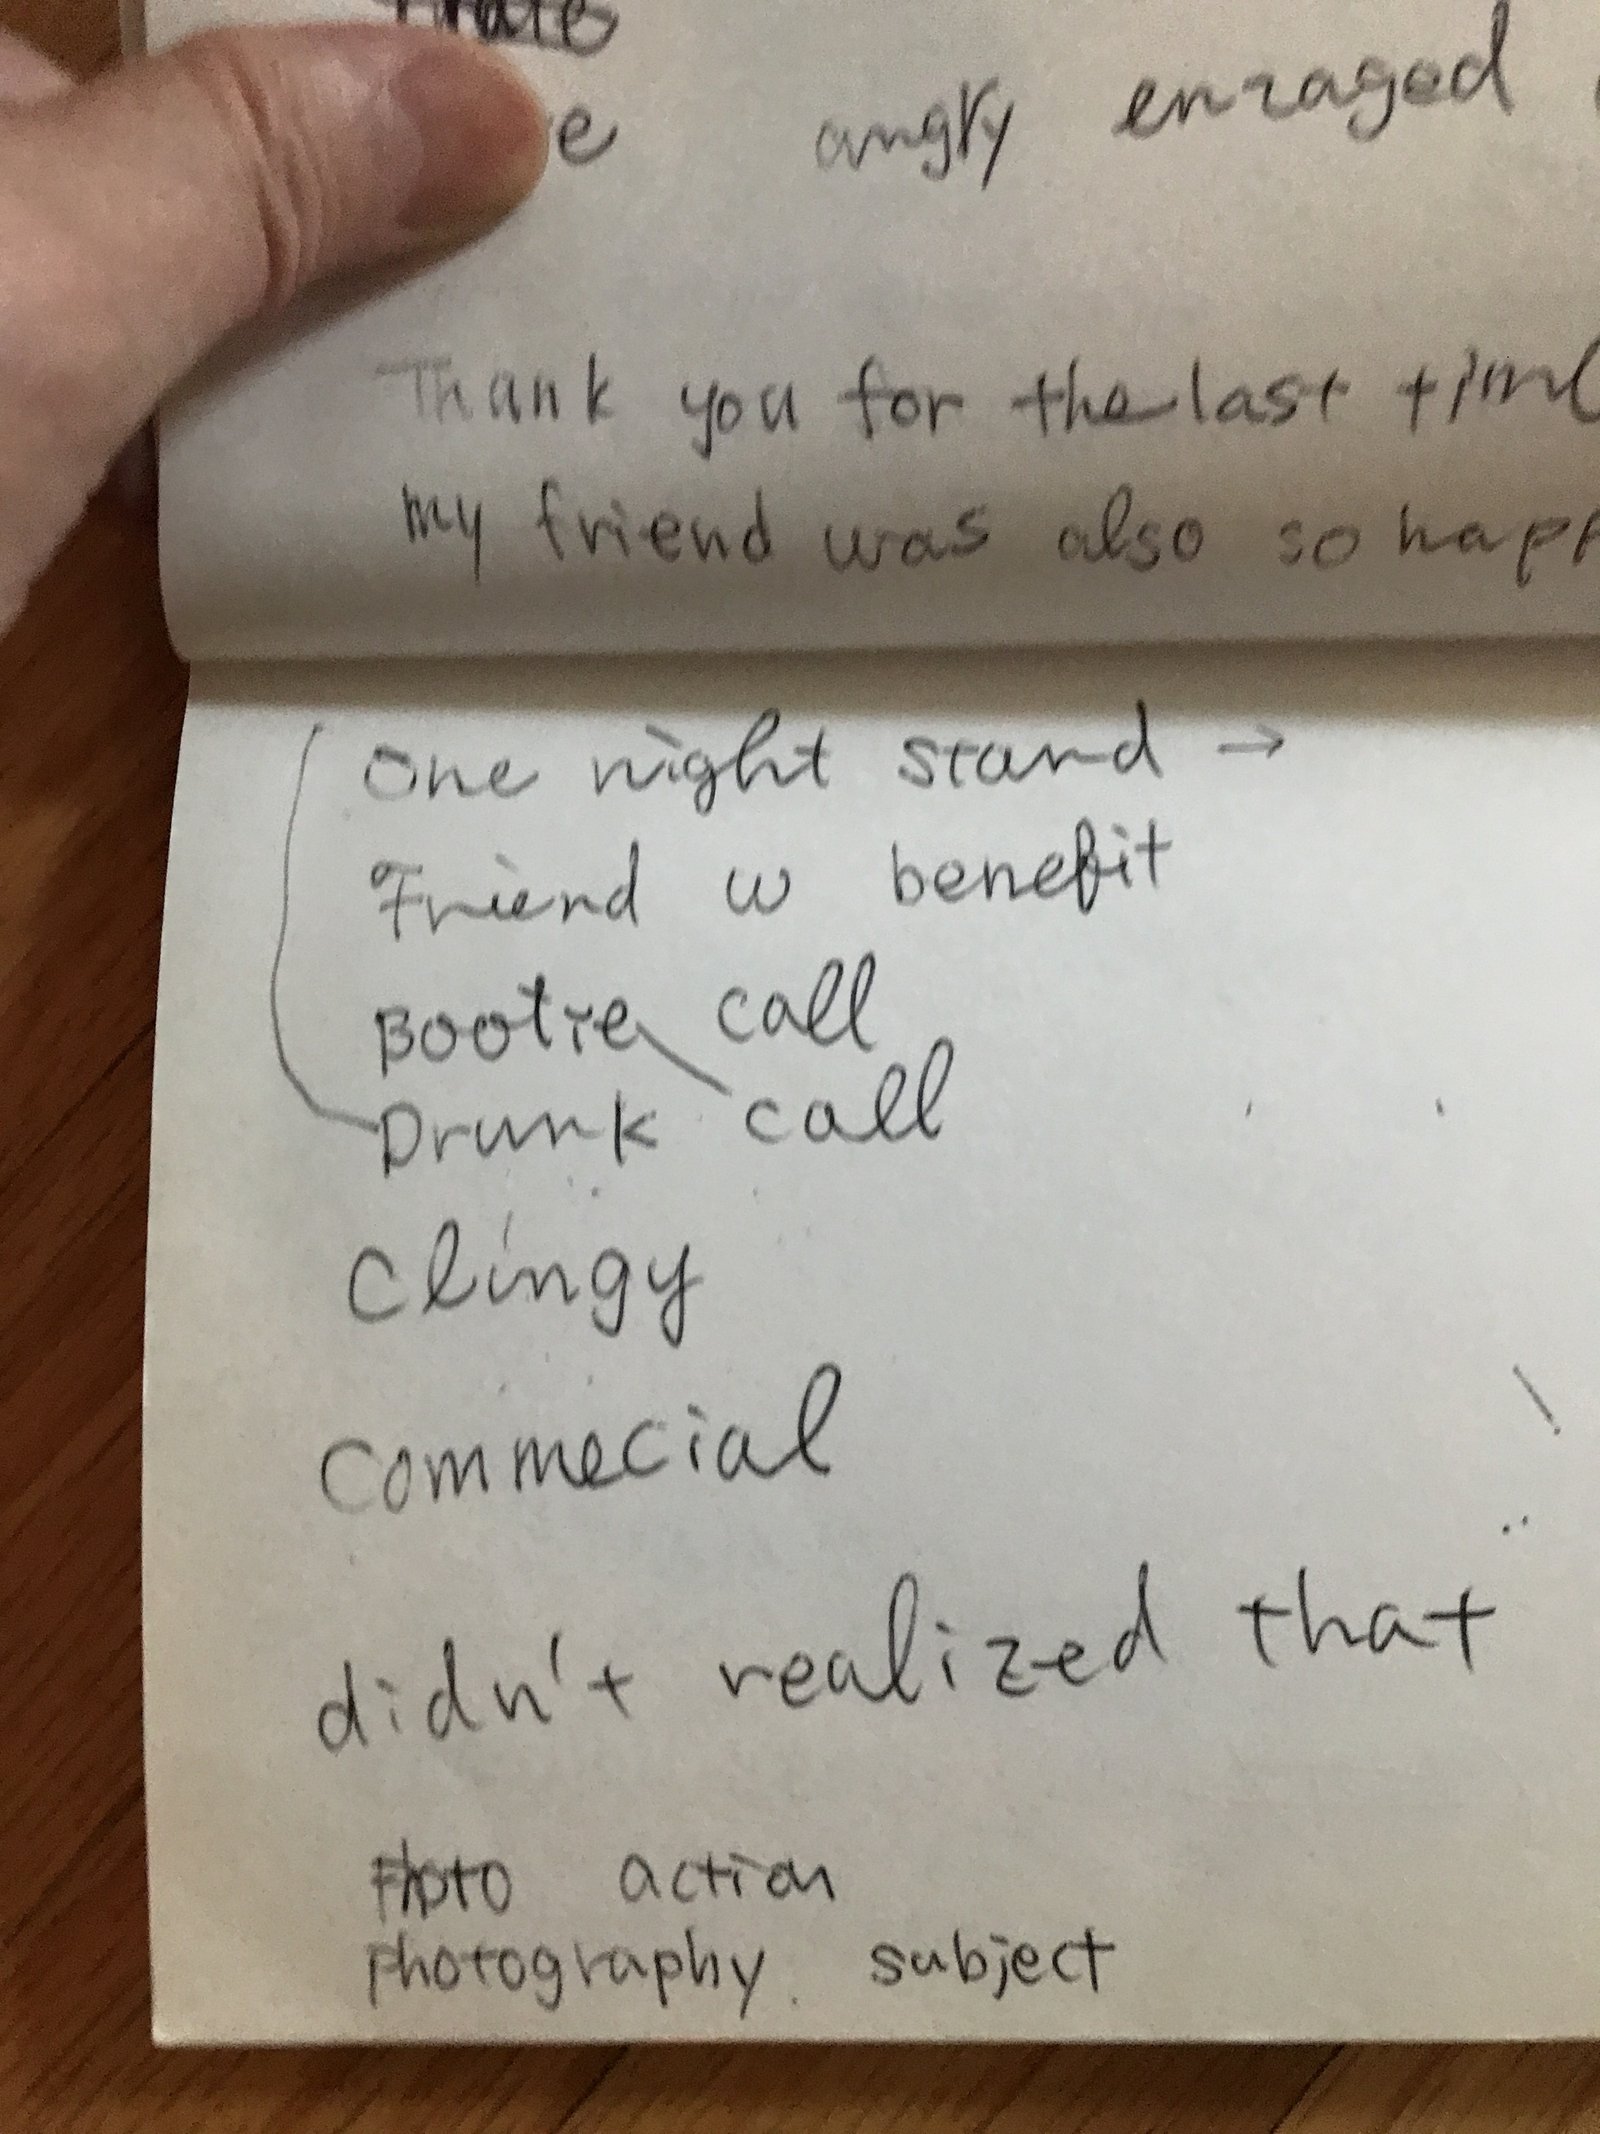 angry enraged
Thank you for the last time
my friend was also so happ
One night stand →
Friend w benefit
Bootie call
Drunk call
Clingy
commecial
didn't realized that
Photo action
photography subject